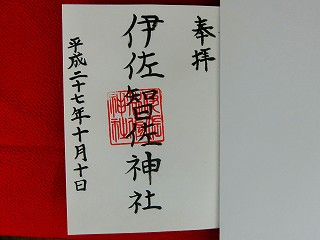 奉拝
伊佐智佐神社
平成二十七年十月十日